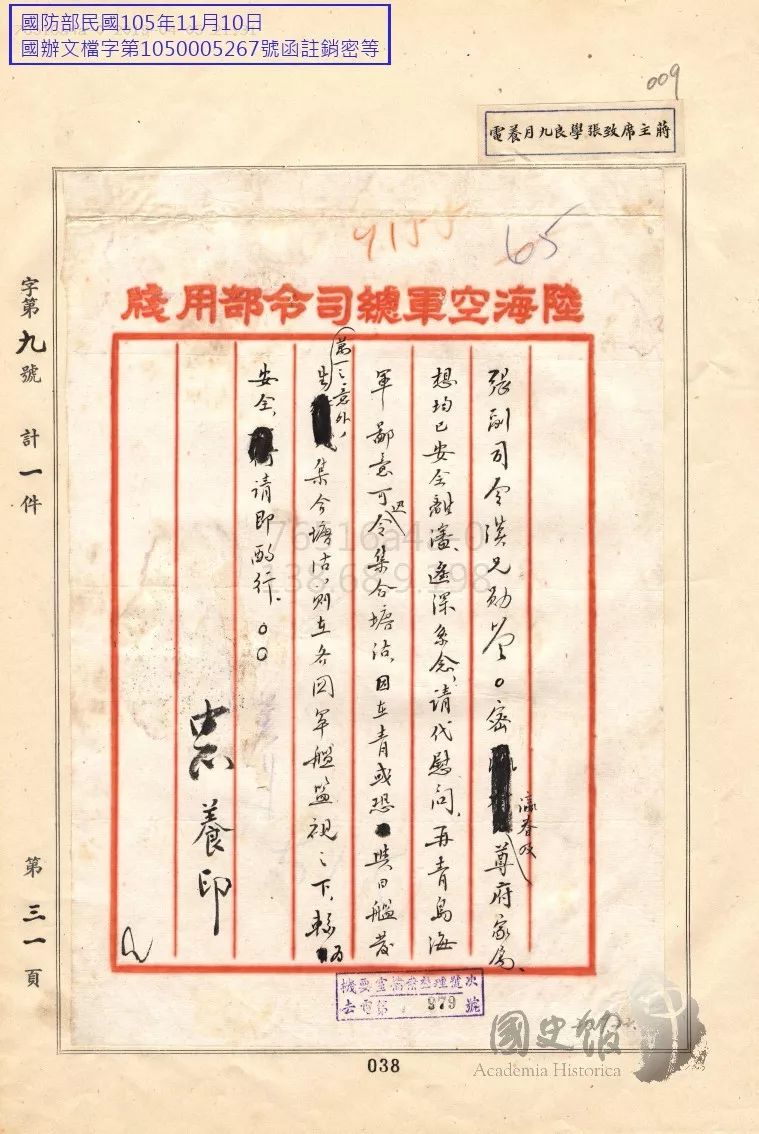 國防部民國105年11月10日
國辦文檔字第1050005267號函註銷密等
009
蔣主席致張學良九月養電
4155
65
陸海空軍總司令部用牋
張副司令漢兄勛鑒○密瀛眷及尊府家屬、
想均已安全離瀋、遙深系念、請代慰問、再青島海
軍鄙意可迅令集合塘沽、因在青或恐與日艦發
生萬一之意外、集合塘沽、則在各囯軍艦監視之下、較為
安全、請即酌行、○○
中正養印
字第九號 計一件
第三一頁
機要室檔案整理號次
去電第 979 號
038
國史館
Academia Historica